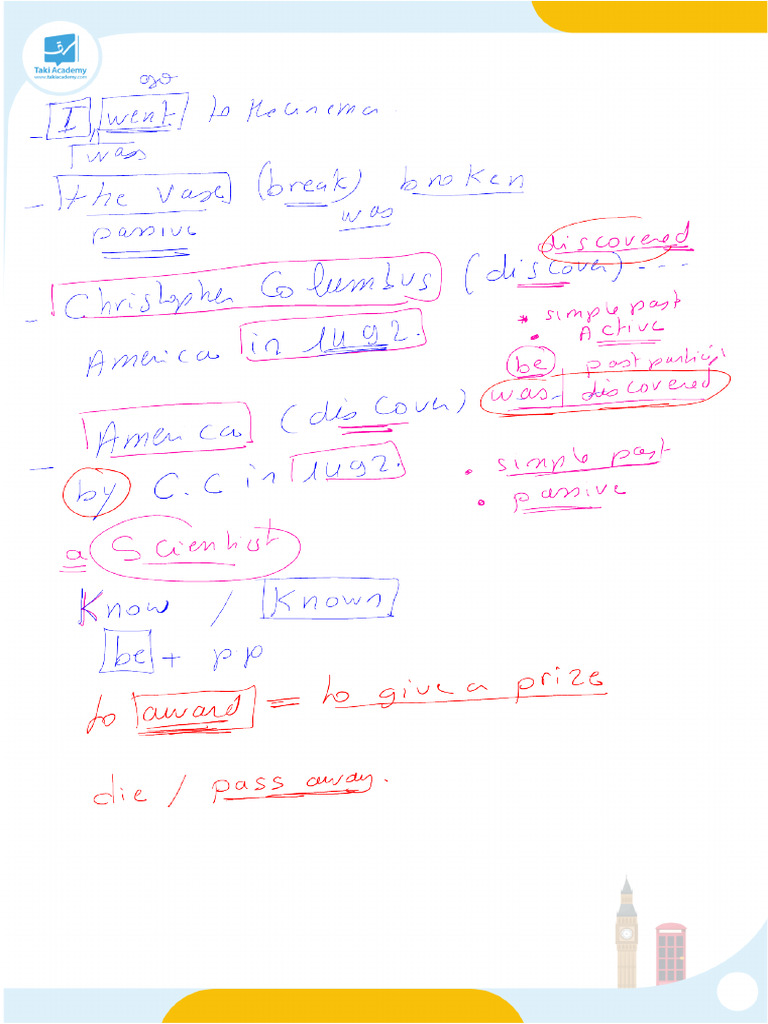 Taki Academy
www.takiacademy.com
go
- I went to the cinema.
was
- the vase (break) broken
was
passive
discovered
- Christopher Columbus (discover) ---
* simple past
America in 1492.
• Active
be past particip
America (discover) was discovered
- by C.C in 1492.
• simple past
• passive
a Scientist
Know / Known
be + pp
to award = to give a prize
die / pass away.